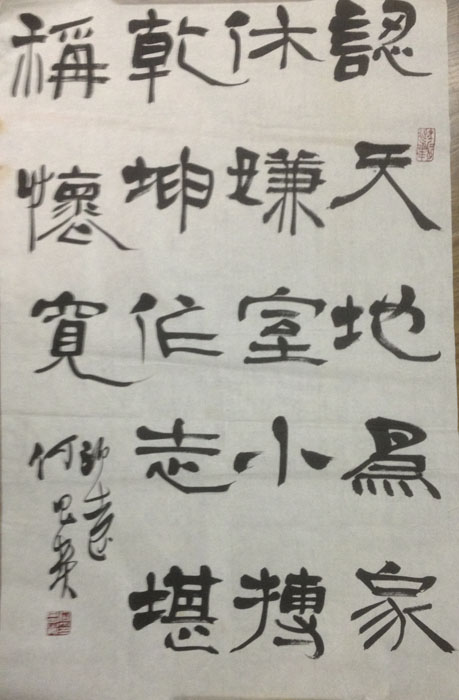 認天地爲家
休嫌室小搏
乾坤作志堪
稱懷寬
何